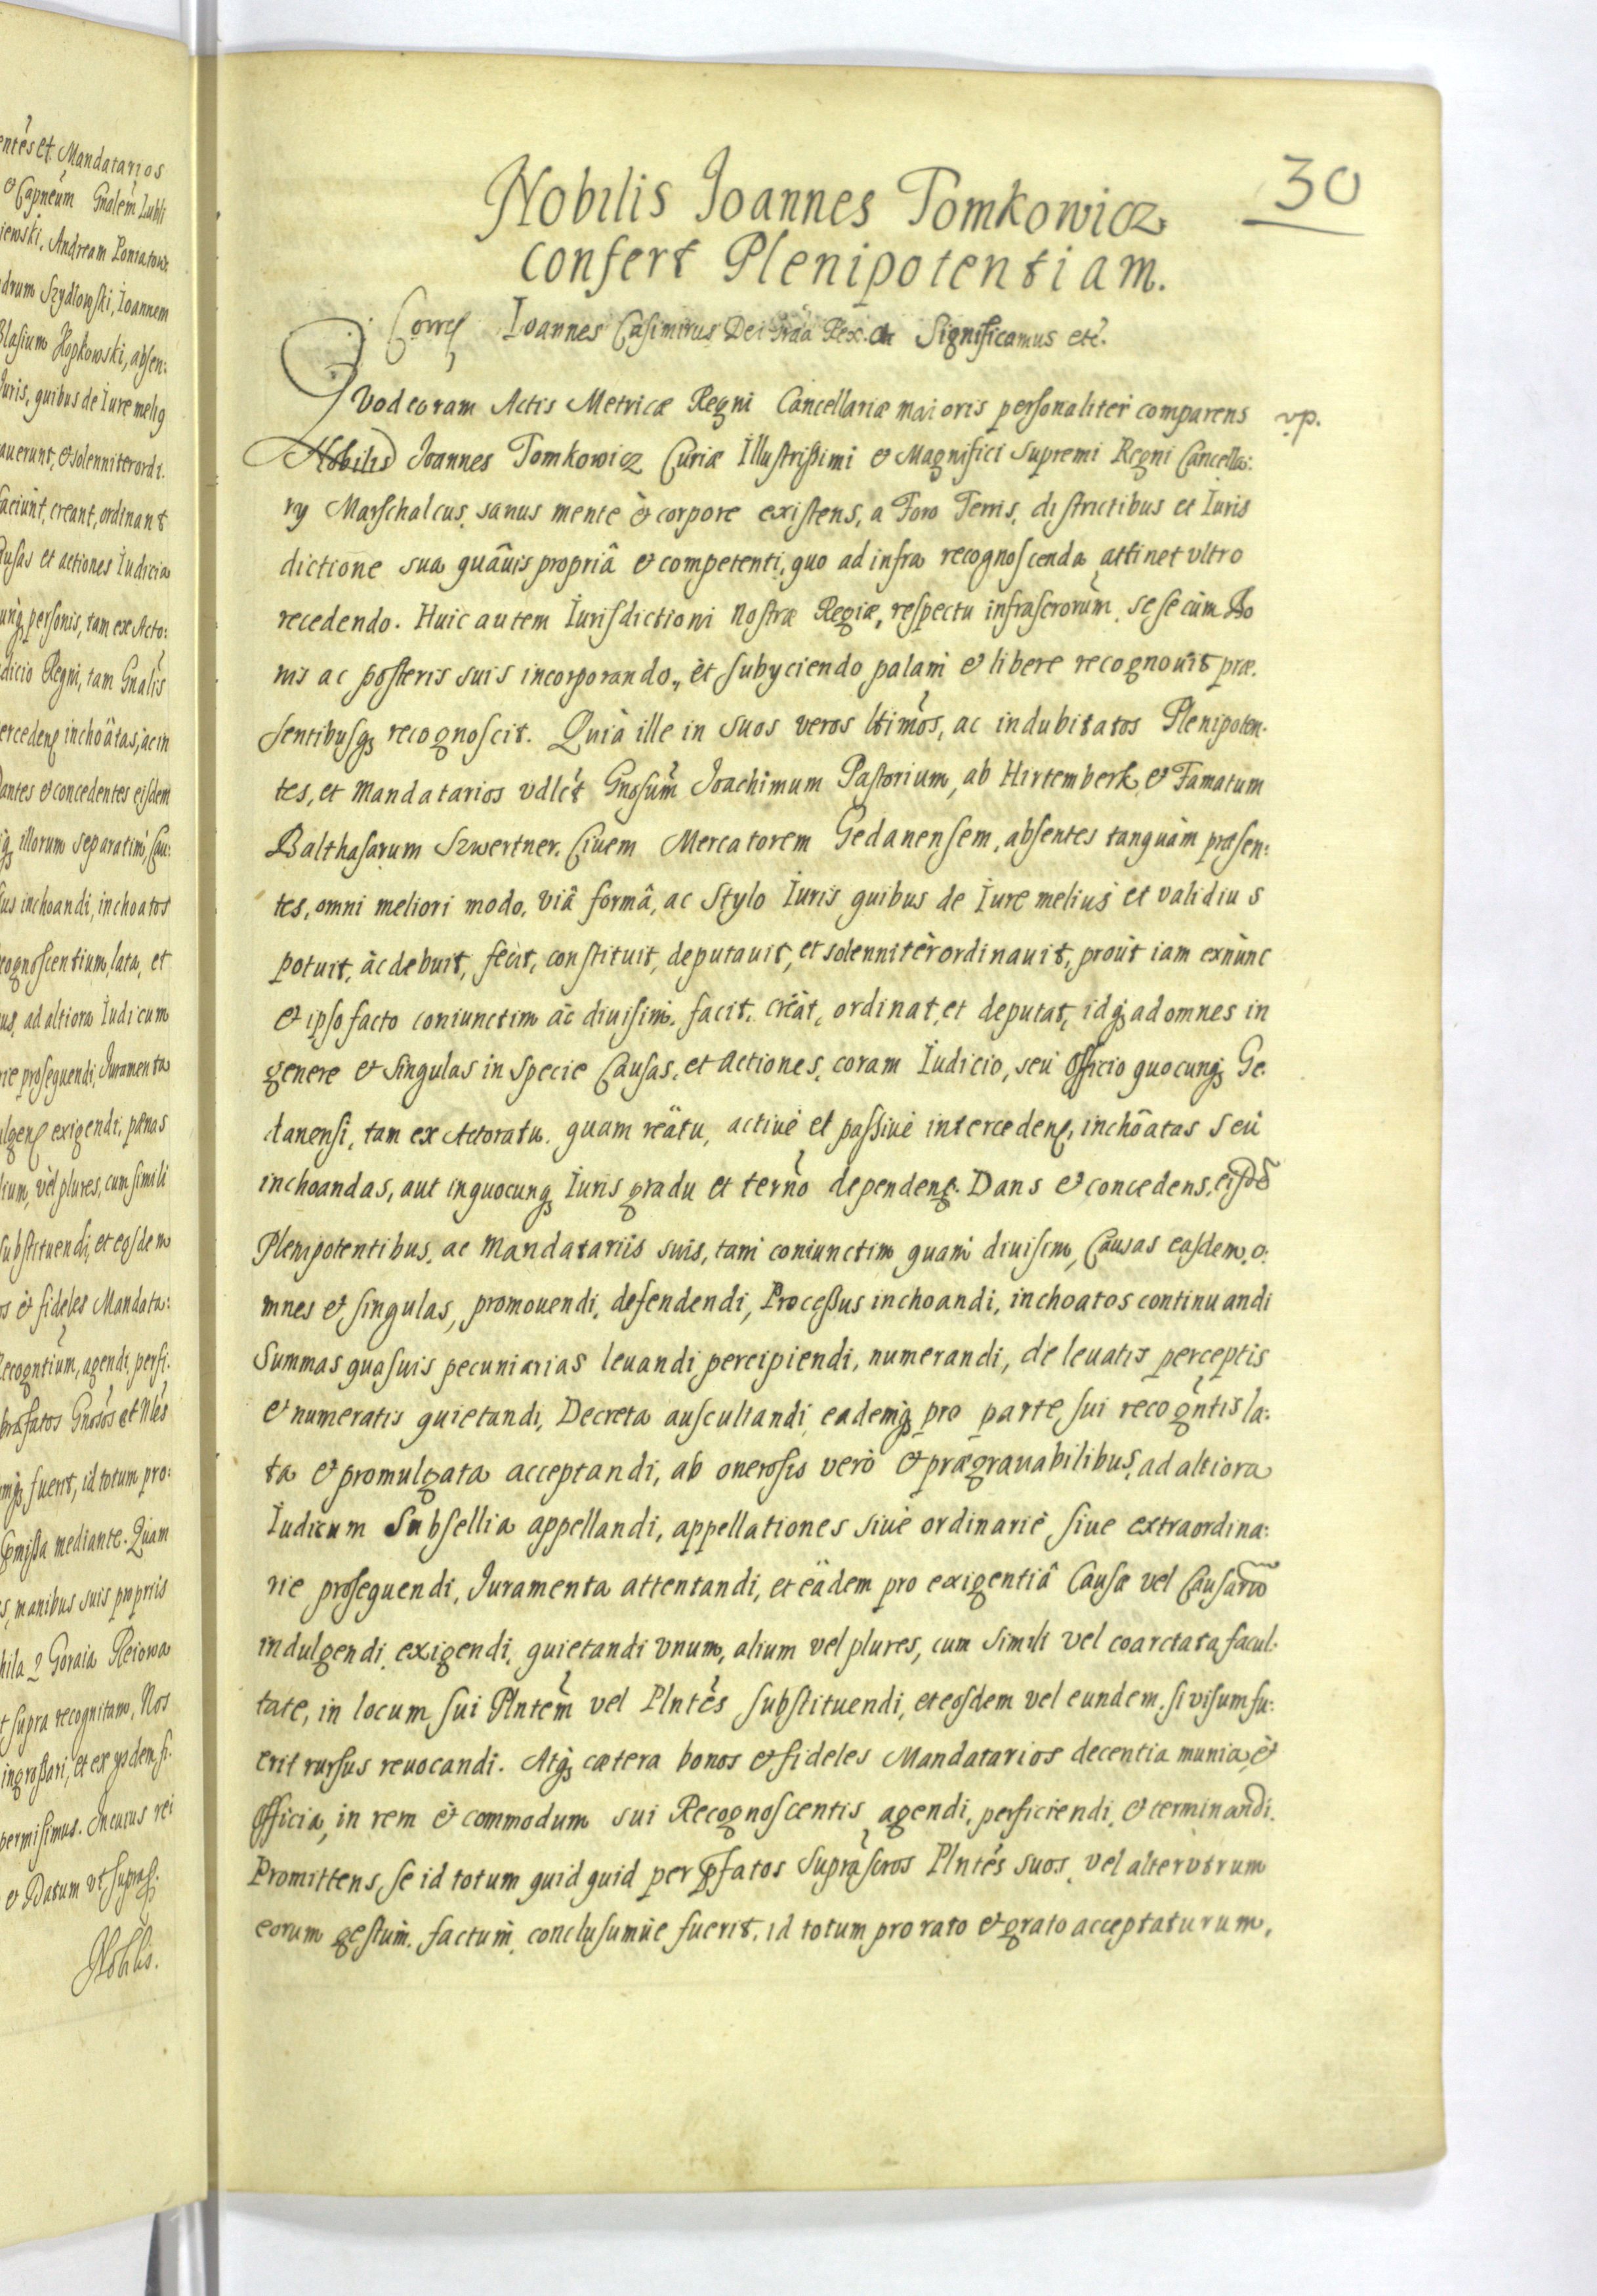 entes et Mandatarios
& Capneum Gnalem Lubli
iewski, Andream Poniatows
drum Szydlowski, Ioannem
Blasium Hopkowski, absen:
Iuris, quibus de Iure meliq
auerunt, & solenniter ordi.
faciunt, creant, ordinant
usas et actiones Iudicia
unq personis, tam ex Acto:
dicio Regni, tam Gnalis
ercedenę inchoâtas, ac in
Dantes & concedentes eisdem
illorum separatim, Cau:
sus inchoandi, inchoatos
cognoscentium, lata, et
us, ad altiora Iudicum
rie prosequendi, Iuramenta
ulgenę exigendi, pænas
lium, vel plures, cum simili
substituendi, et eosdem
os & fideles Mandata:
Recogntium, agendi, perfi:
præfatos Gnosos et Nles
mq fuerit, id totum pro:
missa mediante. Quam
s, manibus suis proprijs
Goraia Pleiowa
t supra recognitam, Nos
ingrossari, et ex ysdem, si.
permisimus. In cuius rei
& Datum vt supra
Nobilis.
30
Nobilis Ioannes Tomkowicz
confert Plenipotentiam.
Ioannes Casimirus Dei Grãa Rex. Significamus etc.
Quod coram Actis Metricæ Regni Cancellariæ maioris personaliter comparens vp.
Nobilis Ioannes Tomkowicz Curiæ Illustrißimi & Magnifici Supremi Regni Cancella:
ry Marschalcus, sanus mente & corpore existens, a Foro Terris, districtibus et Iuris
dictione sua quâuis propriâ & competenti, quo ad infra recognoscenda attinet vltro
recedendo. Huic autem Iurisdictioni Nostræ Regiæ, respectu infrascrorum, sese cum Bo
nis ac posteris suis incorporando, et subyciendo palam & libere recognouit præ.
sentibusqȝ recognoscit. Quia ille in suos veros ltimos, ac indubitatos Plenipoten.
tes, et Mandatarios vdlct Gnosum Ioachimum Pastorium, ab Hirtemberk & Famatum
Balthasarum Szwertner, Ciuem Mercatorem Gedanensem, absentes tanquàm præsen:
tes, omni meliori modo, viâ formâ, ac Stylo Iuris quibus de Iure melius et validius
potuit, àc debuit, fecit, constituit, deputauit, et solennitèr ordinauit, prout iam exnunc
& ipso facto coniunctim àc diuisim, facit, creat, ordinat, et deputat, idqȝ ad omnes in
genere & singulas in specie Causas, et Actiones, coram Iudicio, seu Officio quocunqȝ Ge.
danensi, tam ex Actoratu, quam reätu, actiuè et passiuè intercedenę, inchôatas seu
inchoandas, aut inquocunqȝ Iuris gradu et terno dependenę. Dans & concedens, eisdē
Plenipotentibus, ac Mandatarijs suis, tam coniunctim quam diuisim, Causas easdem, o:
mnes & singulas, promouendi, defendendi, Proceßus inchoandi, inchoatos continuandi
Summas quasuis pecuniarias leuandi, percipiendi, numerandi, de leuatis perceptis
& numeratis quietandi, Decreta auscultandi eademqȝ pro parte sui recogntis la:
ta & promulgata acceptandi, ab onerosis verò & prægrauabilibus, ad altiora
Iudicum Subsellia appellandi, appellationes siuè ordinariè, siue extraordina:
rie prosequendi, Iuramenta attentandi, et eädem pro exigentiâ Causæ vel Causarũ
indulgendi, exigendi, quietandi vnum, alium vel plures, cum simili vel coarctata facul:
tate, in locum sui Plntem vel Plntes substituendi, et eosdem vel eundem, si visum fu:
erit rursus reuocandi. Atqȝ cætera bonos & fideles Mandatarios decentia munia, &
Officia, in rem & commodum sui Recognoscentis agendi, perficiendi, & terminandi.
Promittens, se id totum quidquid per p̄fatos suprascros Plntes suos, vel alterutrum
eorum gestum, factum, conclusumue fuerit, id totum pro rato & grato acceptaturum,